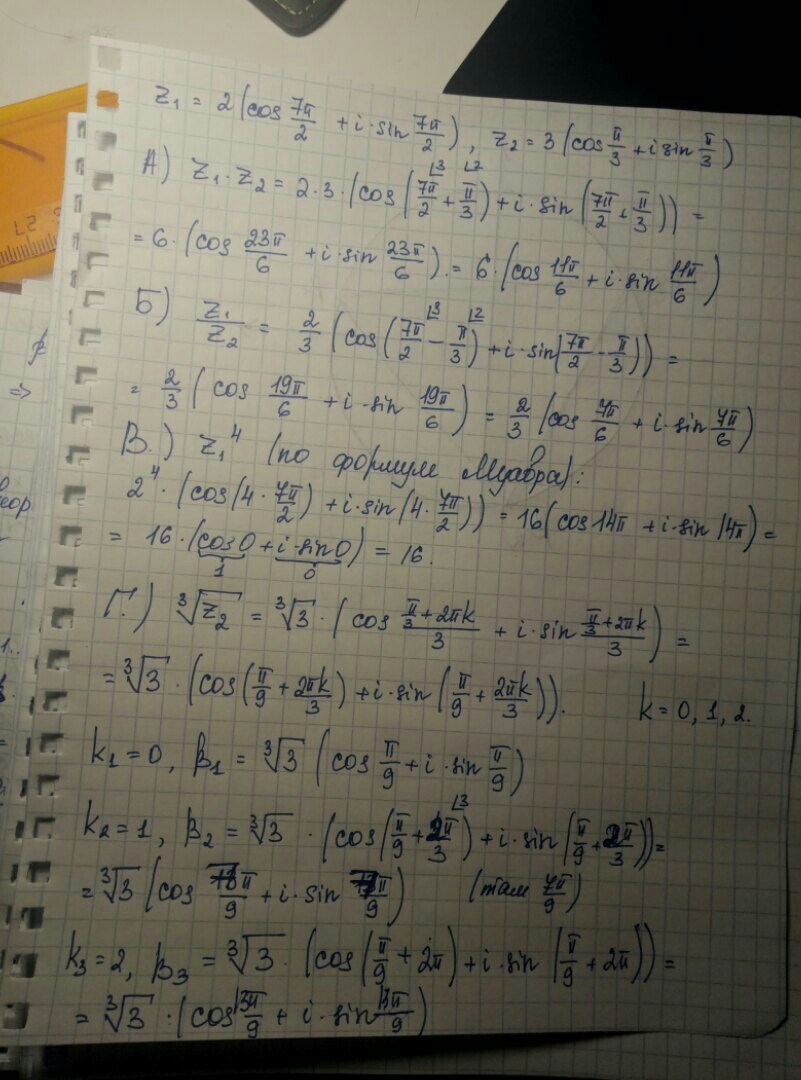 z₁ = 2 (cos 7π/2 + i·sin 7π/2), z₂ = 3 (cos π/3 + i sin π/3)
А) z₁·z₂ = 2·3·(cos (7π/2 ⌊3 + π/3 ⌊2) + i·sin (7π/2 + π/3)) =
= 6·(cos 23π/6 + i·sin 23π/6) = 6·(cos 11π/6 + i·sin 11π/6)
Б) z₁/z₂ = 2/3 (cos (7π/2 ⌊3 − π/3 ⌊2) + i·sin (7π/2 − π/3)) =
= 2/3 (cos 19π/6 + i·sin 19π/6) = 2/3 (cos 7π/6 + i·sin 7π/6)
В.) z₁⁴ (по формуле Муавра):
2⁴·(cos (4·7π/2) + i·sin (4·7π/2)) = 16 (cos 14π + i·sin 14π) =
= 16·(cos 0 + i·sin 0) = 16.
1 0
Г.) ∛z₂ = ∛3·(cos (π/3 + 2πk)/3 + i·sin (π/3 + 2πk)/3) =
= ∛3·(cos (π/9 + 2πk/3) + i·sin (π/9 + 2πk/3)). k = 0, 1, 2.
k₁ = 0, β₁ = ∛3 (cos π/9 + i·sin π/9)
k₂ = 1, β₂ = ∛3·(cos (π/9 + 2π/3 ⌊3) + i·sin (π/9 + 2π/3)) =
= ∛3 (cos 7π/9 + i·sin 7π/9) (там 7π/9)
k₃ = 2, β₃ = ∛3·(cos (π/9 + 2π) + i·sin (π/9 + 2π)) =
= ∛3·(cos 13π/9 + i·sin 13π/9)